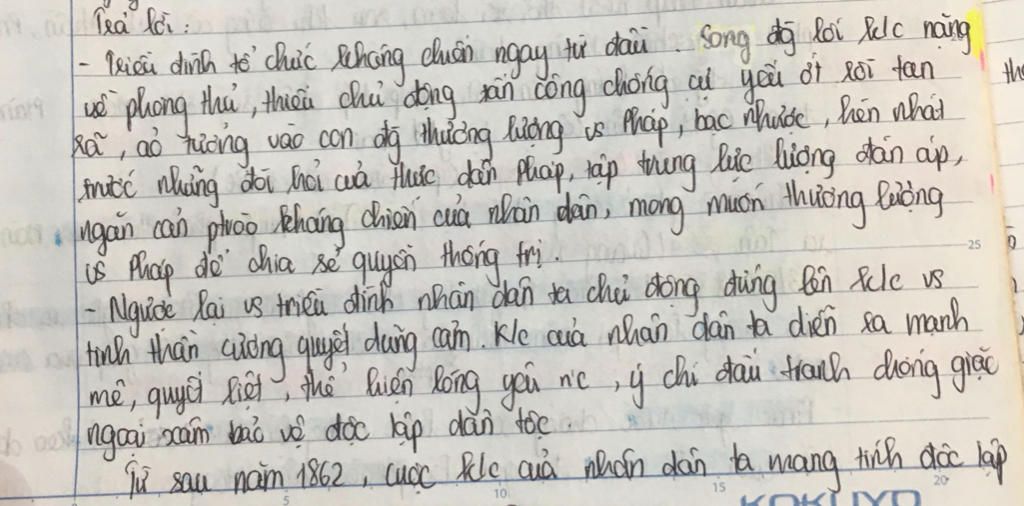 Trả lời:
- Triều đình tổ chức kháng chiến ngay từ đầu song đg lối k/c nặng
về phòng thủ, thiếu chủ động tấn công chống cự yếu ớt rồi tan
rã, ảo tưởng vào con đg thương lượng vs Pháp, bạc nhược, hèn nhát
trước những đòi hỏi của thực dân Pháp, tập trung lực lượng đàn áp,
ngăn cản ptrào kháng chiến của nhân dân, mong muốn thương lượng
vs Pháp để chia sẻ quyền thống trị.
25
- Ngược lại vs triều đình nhân dân ta chủ động đứng lên k/c vs
tinh thần cương quyết dũng cảm K/c của nhân dân ta diễn ra mạnh
mẽ, quyết liệt, thể hiện lòng yêu n'c, ý chí đấu tranh chống giặc
ngoại xâm bảo vệ độc lập dân tộc
Từ sau năm 1862, cuộc k/c của nhân dân ta mang tính độc lập
5 10 15 20
KOKUYO